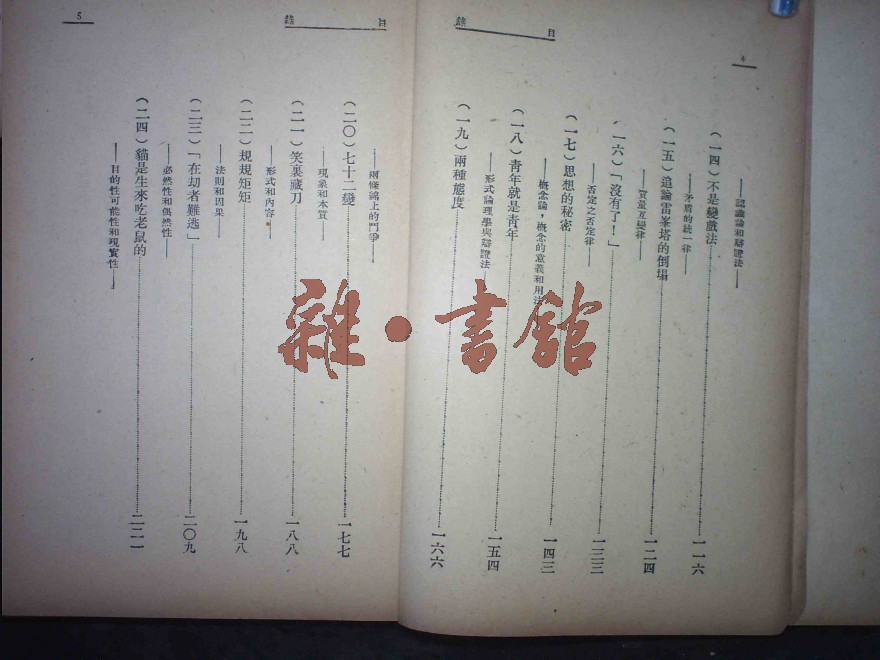 4
目錄
——認識論和辯證法——
(一四)不是變戲法……一一六
——矛盾的統一律——
(一五)追論雷峯塔的倒塌……一二四
——質量互變律——
(一六)「沒有了!」……一三三
——否定之否定律——
(一七)思想的秘密……一四三
——概念論,概念的意義和用法
(一八)青年就是青年……一五四
——形式論理學與辯證法——
(一九)兩種態度……一六六
5
目錄
——兩條線上的鬥爭——
(二〇)七十二變……一七七
——現象和本質——
(二一)笑裏藏刀……一八八
——形式和內容——
(二二)規規矩矩……一九八
——法則和因果——
(二三)「在劫者難逃」……二〇九
——必然性和偶然性——
(二四)貓是生來吃老鼠的……二二一
——目的性可能性和現實性——
雜·書館